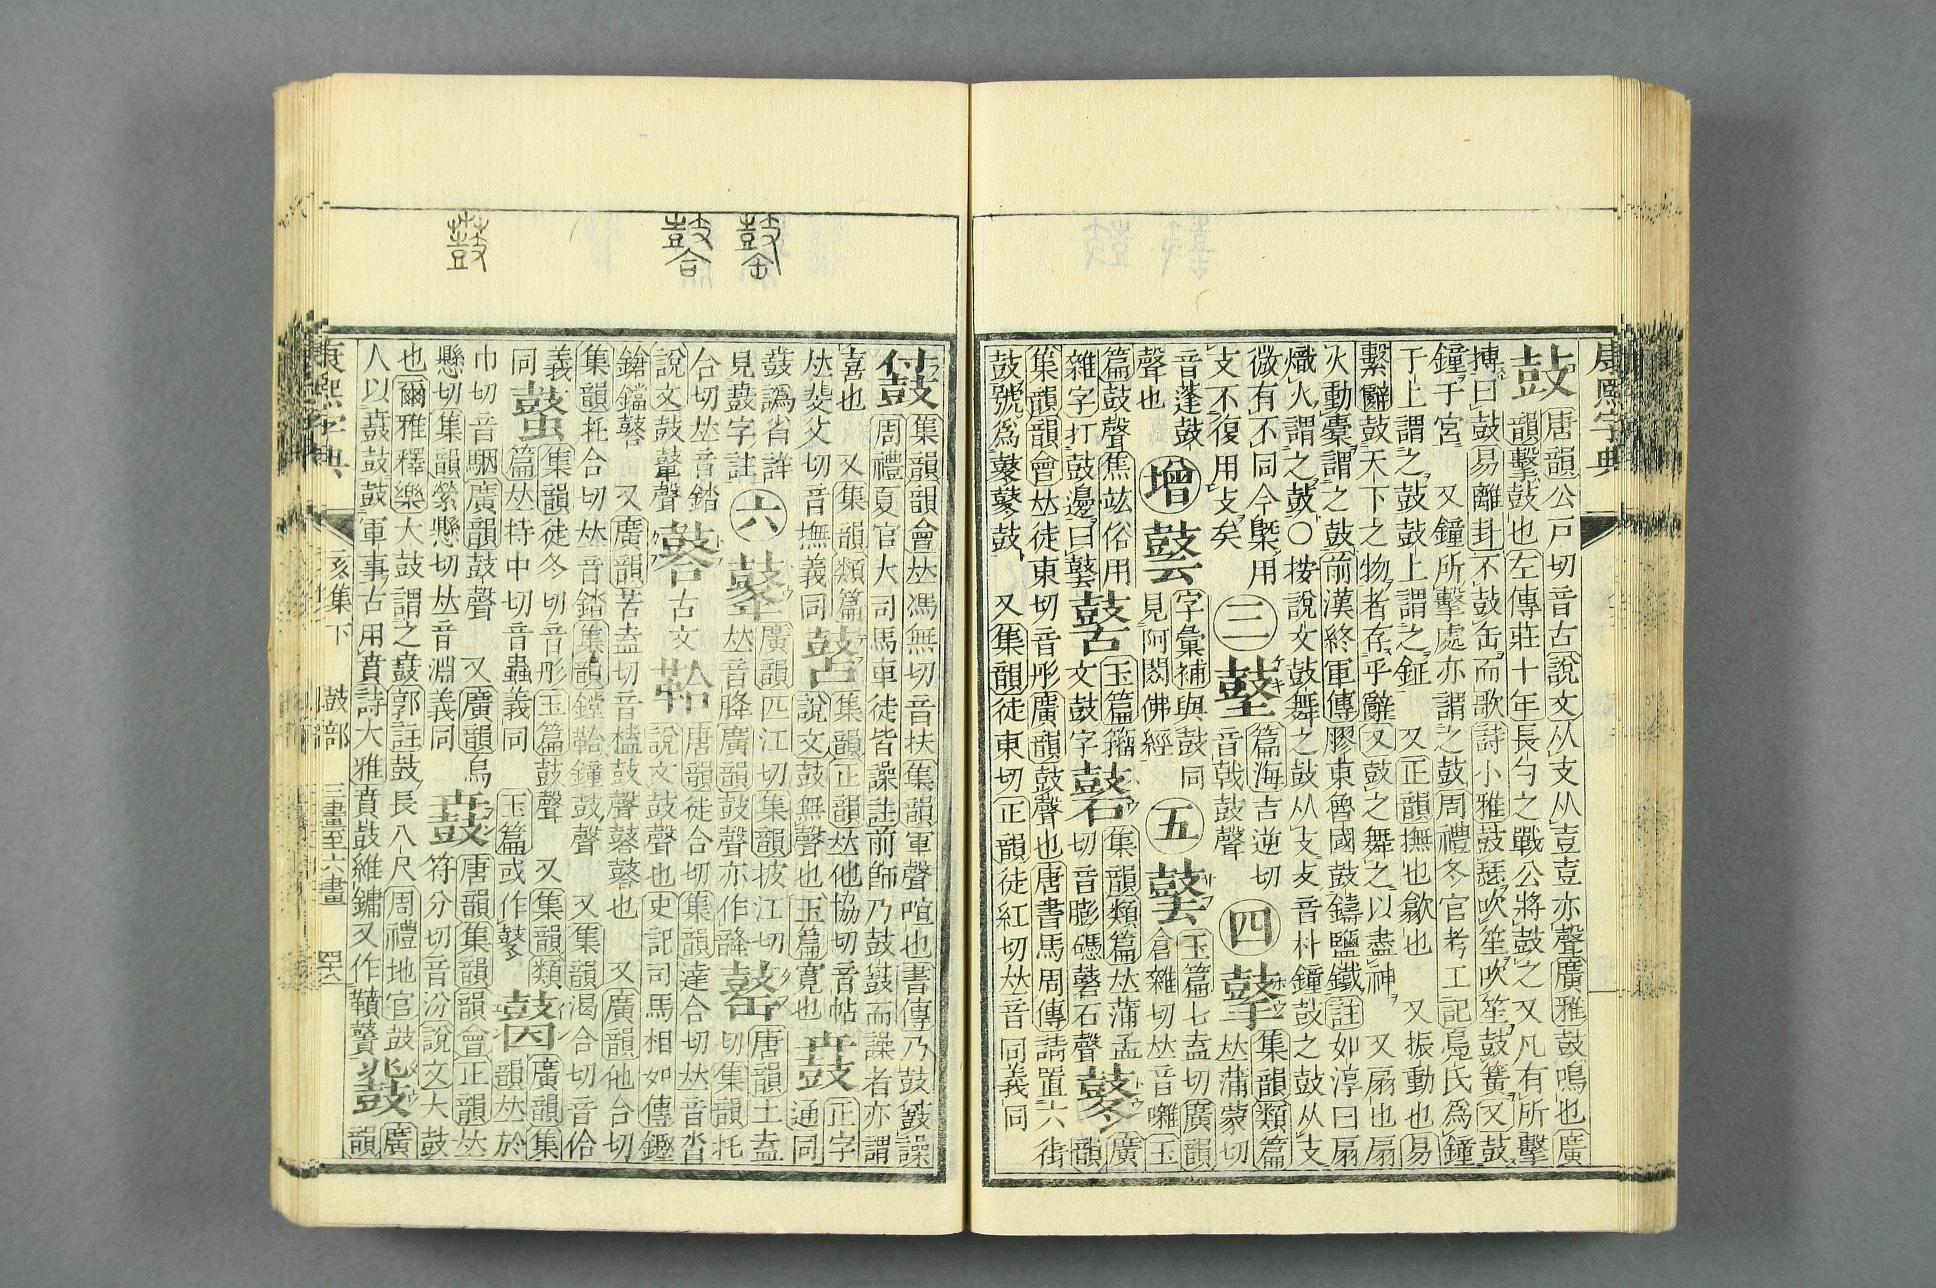 康熙字典
鼓 唐韻公戸切音古說文从支从壴壴亦聲廣雅鼓鳴也廣
韻擊鼓也左傳莊十年長勺之戰公將鼓之又凡有所擊
搏曰鼓易離卦不鼓缶而歌詩小雅鼓瑟吹笙吹笙鼓簧又鼓
鐘于宮 又鐘所擊處亦謂之鼓周禮冬官考工記鳧氏爲鐘
于上謂之鼓鼓上謂之鉦 又正韻撫也歙也 又振動也易
繫辭鼓天下之物者存乎辭又鼓之舞之以盡神 又扇也扇
火動橐謂之鼓前漢終軍傳膠東魯國鼓鑄鹽鐵註如淳曰扇
熾火謂之鼓○按說文鼓舞之鼓从攴攴音朴鐘鼓之鼓从支
微有不同今槩用 三 篇海吉逆切 四 集韻類篇
支不復用攴矣 音戟鼓聲 𠀤蒲蒙切
音蓬鼓 增 字彙補與鼓同 五 玉篇七盍切廣韻
聲也 見阿閦佛經 倉雜切𠀤音囃玉
篇鼓聲焦竑俗用 玉篇籀 集韻類篇𠀤蒲孟 鼕 廣
雜字打鼓邊曰 文鼓字 切音膨礚石聲 韻
集韻韻會𠀤徒東切音彤廣韻鼓聲也唐書馬周傳請置六街
鼓號爲鼕鼕鼓 又集韻徒東切正韻徒紅切𠀤音同義同
集韻韻會𠀤馮無切音扶集韻軍聲喧也書傳乃鼓譟
周禮夏官大司馬車徒皆譟註前師乃鼓而譟者亦謂
喜也 又集韻類篇 集韻正韻𠀤他協切音帖 正字
𠀤斐父切音撫義同 說文鼓無聲也玉篇寬也 通同
鼖譌省詳 六 廣韻匹江切集韻披江切 唐韻土盍
見鼖字註 𠀤音胮廣韻鼓聲亦作韸 切集韻托
合切𠀤音錔 古文鞈 唐韻徒合切集韻達合切𠀤音沓
說文鼓鼙聲 說文鼓聲也史記司馬相如傳鏗
鎗鐺 又廣韻苦盍切音榼鼓聲也 又廣韻他合切
集韻託合切𠀤音錔集韻鏜鞈鐘鼓聲 又集韻渴合切音佮
義 集韻徒冬切音彤玉篇鼓聲 又集韻類 廣韻集
同 篇𠀤持中切音蟲義同 玉篇或作鼕 韻𠀤於
巾切音駰廣韻鼓聲 又廣韻烏 唐韻集韻韻會正韻𠀤
懸切集韻縈懸切𠀤音淵義同 鼖 符分切音汾說文大鼓
也爾雅釋樂大鼓謂之鼖郭註鼓長八尺周禮地官鼓 廣
人以鼖鼓鼓軍事古用賁詩大雅賁鼓維鏞又作鞼 韻
康熙字典 亥集下 鼓部 三畫至六畫